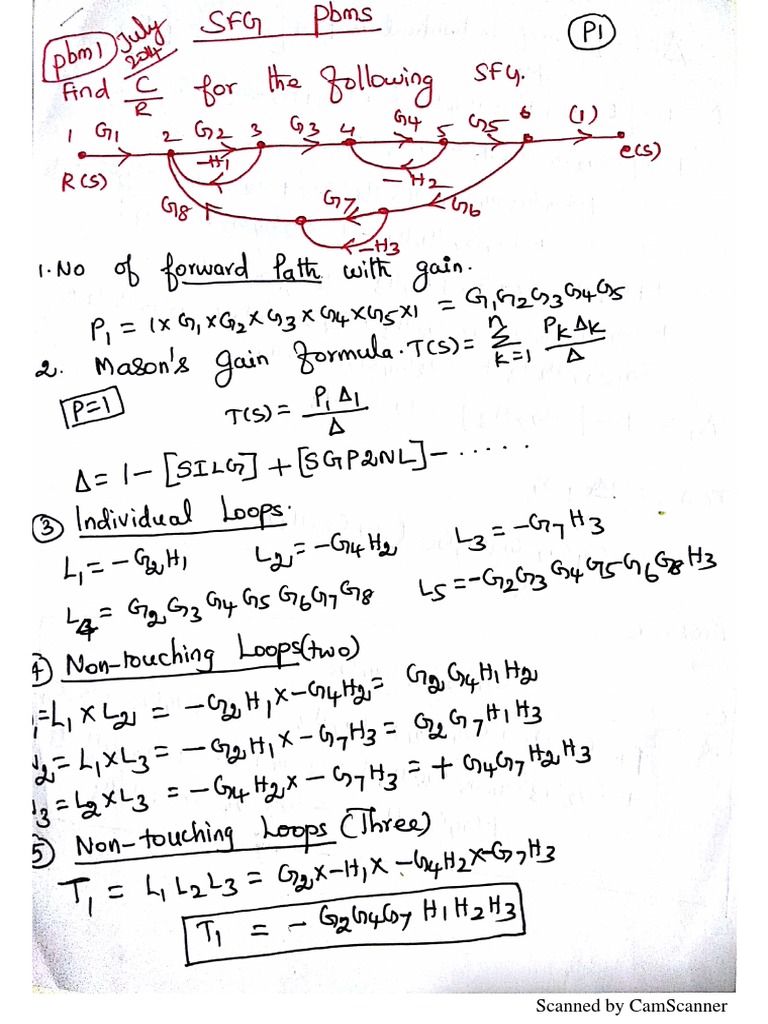 SFG Pbms
P1
pbm1 July 2014
Find C/R for the following SFG.
1 G1 2 G2 3 G3 4 G4 5 G5 6 (1)
-H1
R(s) -H2 C(s)
G8 G7 G6
-H3
1. No of forward Path with gain.
P1 = 1 x G1 x G2 x G3 x G4 x G5 x 1 = G1G2G3G4G5
2. Mason's gain formula. T(s) = n Σ k=1 PkΔk/Δ
P=1 T(s) = P1Δ1/Δ
Δ = 1 - [SILG] + [SGP2NL] - .....
3 Individual Loops.
L1 = -G2H1 L2 = -G4H2 L3 = -G7H3
L4 = G2G3G4G5G6G7G8 L5 = -G2G3G4G5G6G8H3
4) Non-touching Loops (two)
= L1 x L2 = -G2H1 x -G4H2 = G2G4H1H2
2 = L1 x L3 = -G2H1 x -G7H3 = G2G7H1H3
3 = L2 x L3 = -G4H2 x -G7H3 = + G4G7H2H3
5) Non-touching Loops (Three)
T1 = L1 L2 L3 = G2 x -H1 x -G4H2 x -G7H3
T1 = - G2G4G7 H1H2H3
Scanned by CamScanner